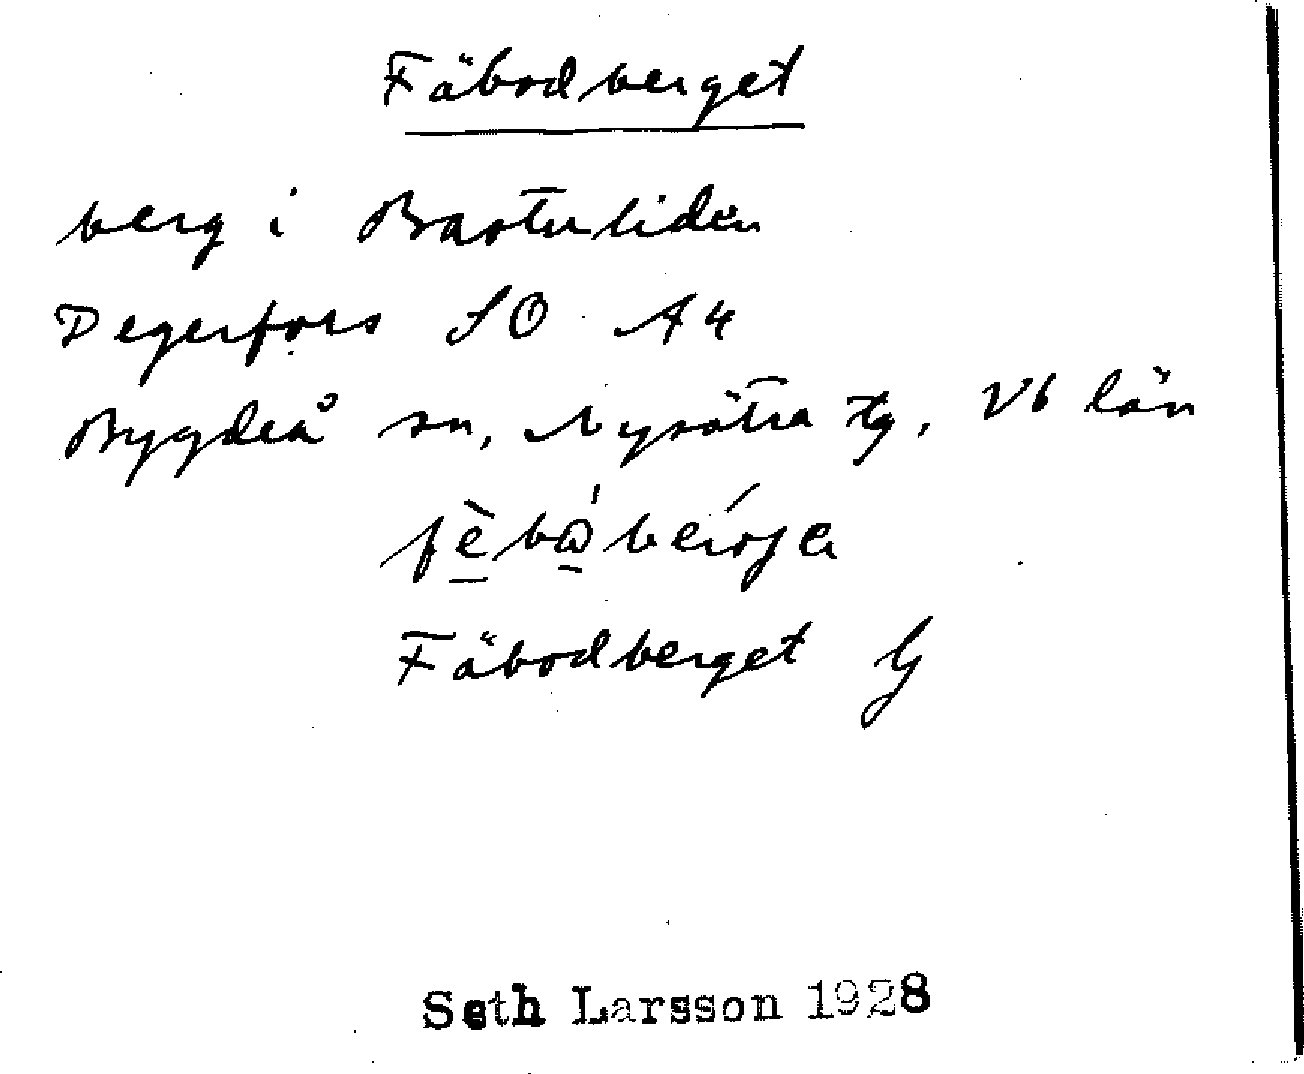 Fäbodberget
berg i Bastuliden
Degerfors SO A4
Bygdeå sn, Nysätra tg, Vb län
Fäbodberget G
Seth Larsson 1928